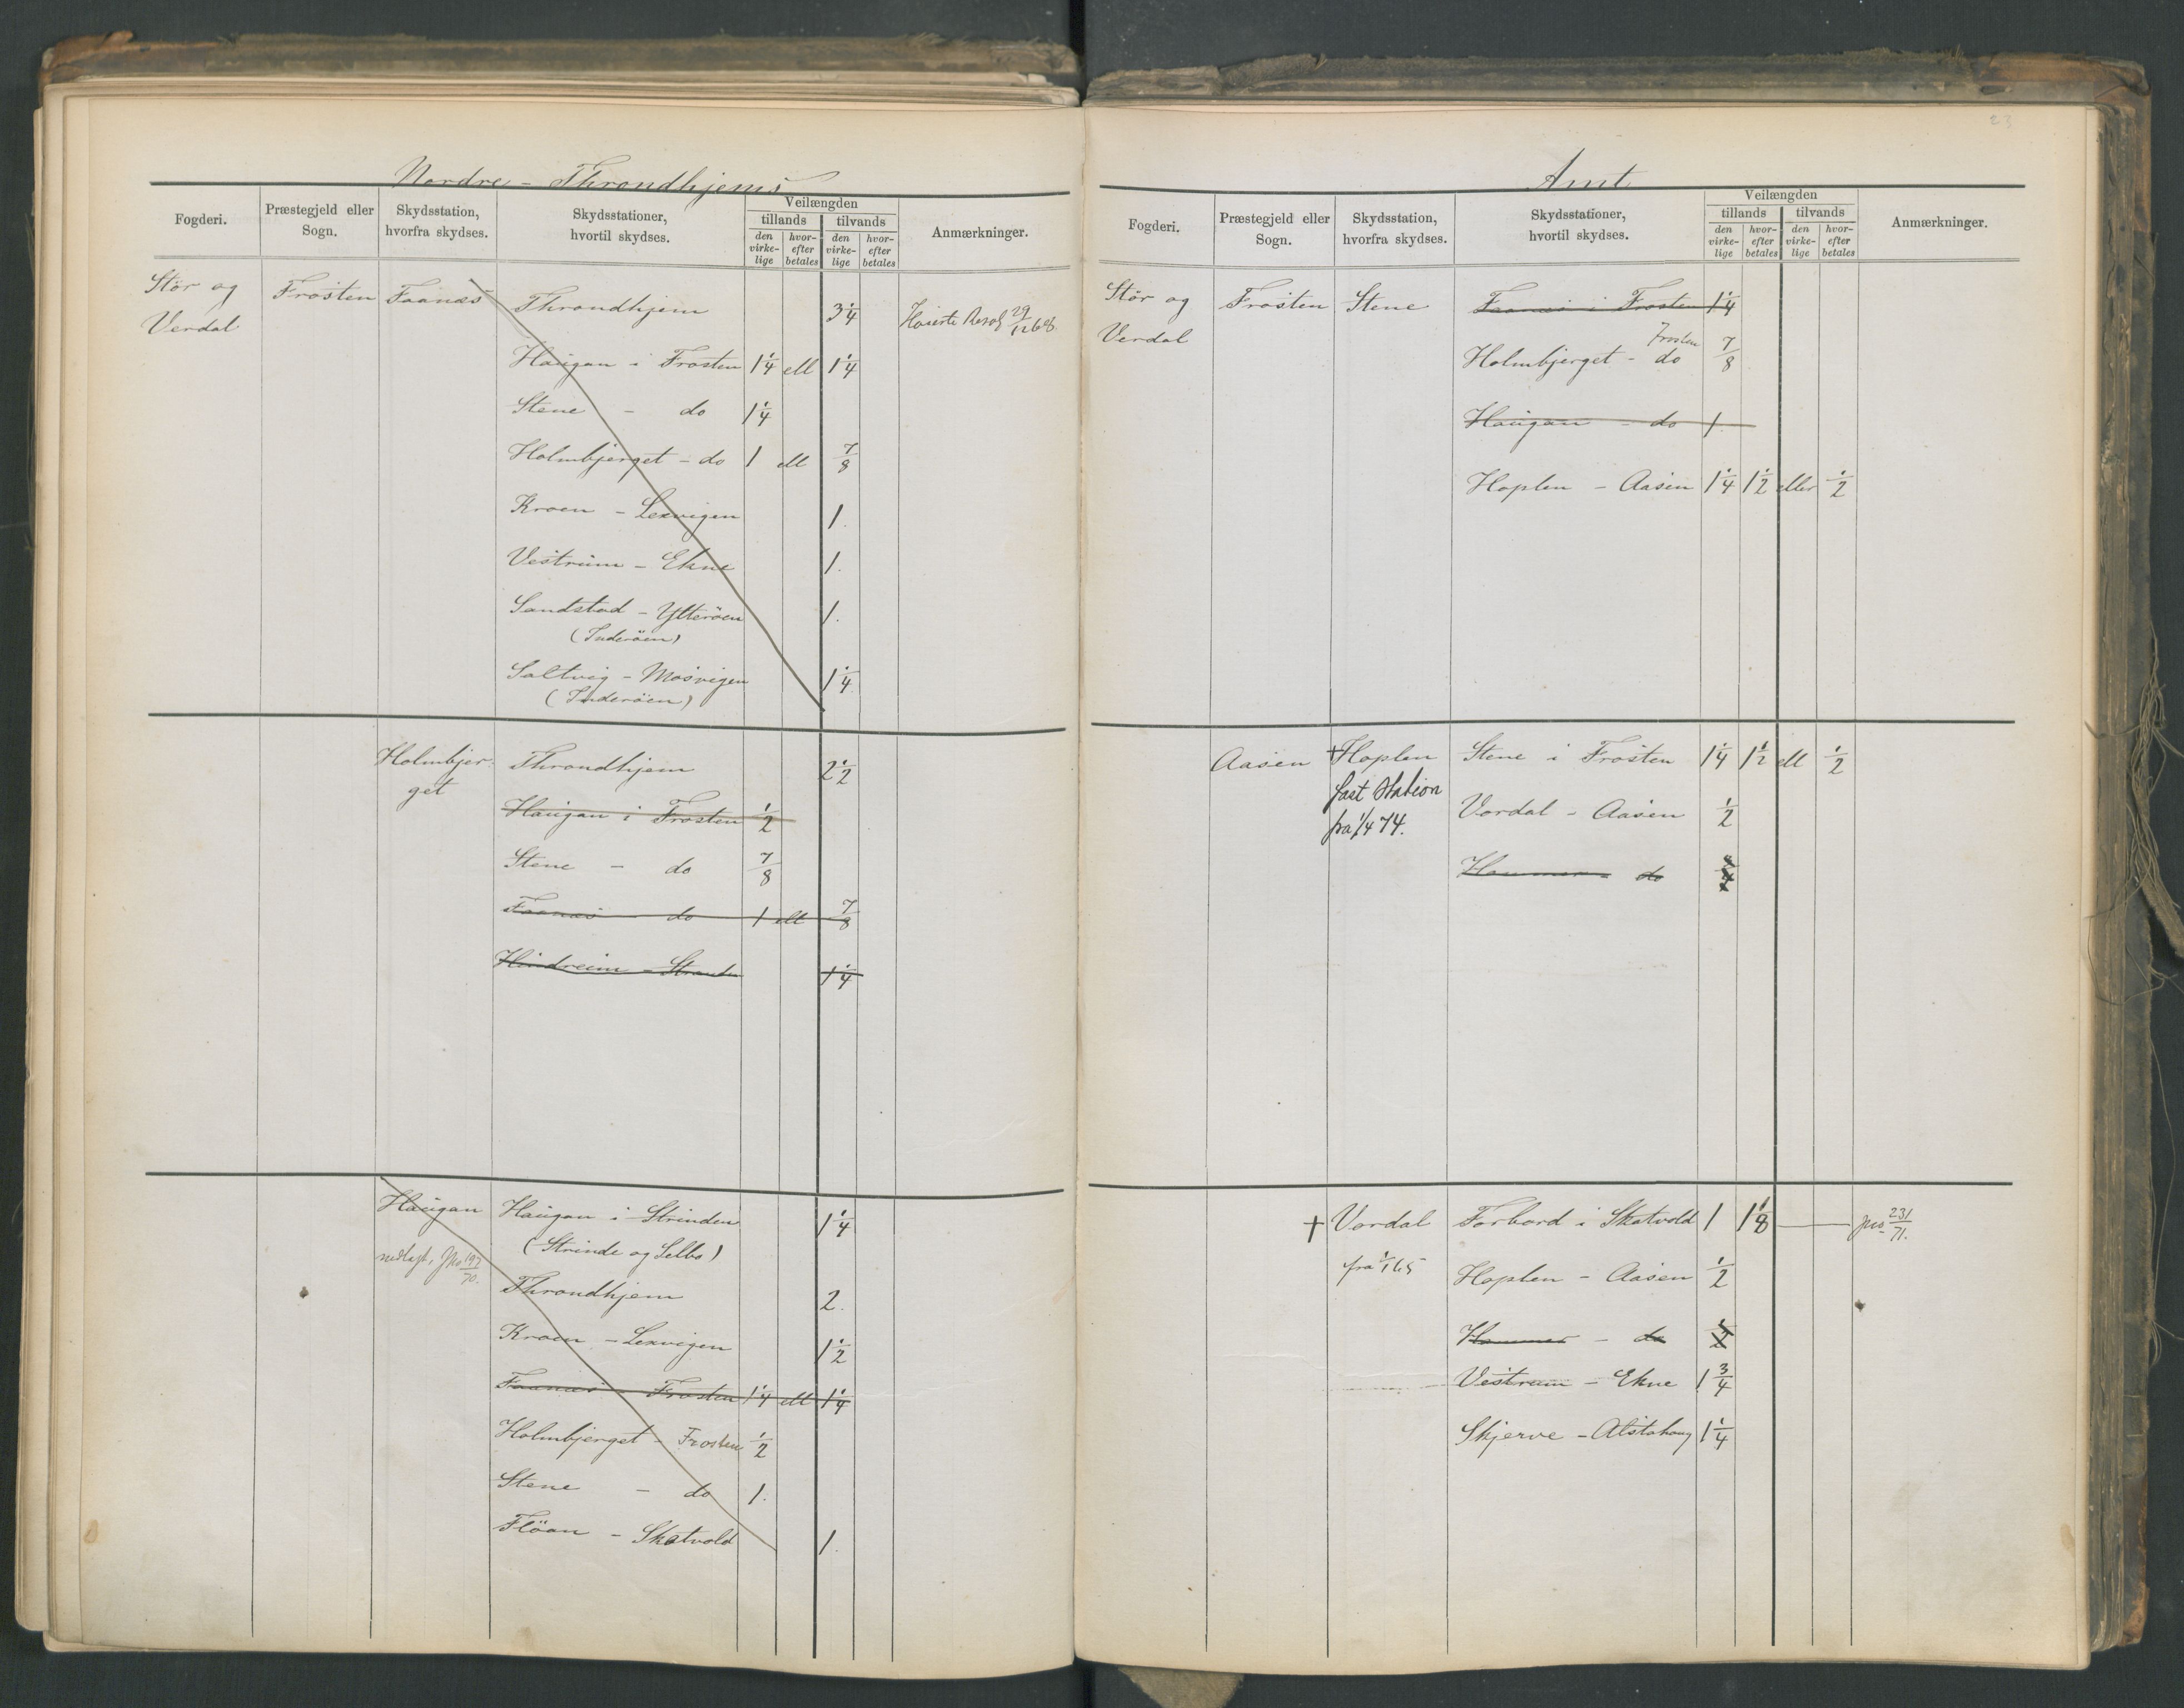 Nordre - Throndhjems
Fogderi.
Præstegjeld eller Sogn.
Skydsstation, hvorfra skydses.
Skydsstationer, hvortil skydses.
Veilængden
tillands tilvands
den virkelige hvorefter betales den virkelige hvorefter betales
Anmærkninger.
Stör og Verdal Frosten Faanæs Throndhjem 3 1/4 Høieste Resol 29/12 68.
Haugan i Frosten 1 1/4 ell 1 1/4
Stene - do 1 1/4
Holmbjerget - do 1 ell 7/8
Kroen - Lexvigen 1.
Vestrum - Ekne 1.
Sandstad - Ytteröen 1.
(Inderöen)
Saltvig - Mosvigen 1 1/4
(Inderöen)
Holmbjerget Throndhjem 2 1/2
Haugan i Frosten 1/2
Stene - do 7/8
Faanæs - do 1 ell 7/8
Hindreim - Stranden 1 1/4
Haugan Haugan i Strinden 1 1/4
(Strinde og Selbo)
nedlagt, Jno 197/70.
Throndhjem 2.
Kroen - Lexvigen 1 1/2
Faanæs - Frosten 1 1/4 ell 1 1/4
Holmbjerget - Frosten 1/2
Stene - do 1.
Flöan - Skatvold 1.
23
Amt
Fogderi.
Præstegjeld eller Sogn.
Skydsstation, hvorfra skydses.
Skydsstationer, hvortil skydses.
Veilængden
tillands tilvands
den virkelige hvorefter betales den virkelige hvorefter betales
Anmærkninger.
Stör og Verdal Frosten Stene Faanæs i Frosten 1 1/4
Frosten
Holmbjerget - do 7/8
Haugan - do 1
Hoplen - Aasen 1 1/4 1 1/2 eller 1/2
Aasen +Hoplen Stene i Frosten 1 1/4 1 1/2 ell 1/2
fast Station
fra 1/4 74.
Vordal - Aasen 1/2
Hammer - do
+ Vordal Forbord i Skatvold 1 1 1/8 Jno 231/71.
fra 1/1 65
Hoplen - Aasen 1/2
Hammer - do
Vestrum - Ekne 1 3/4
Skjerve - Alstahoug 1 1/4